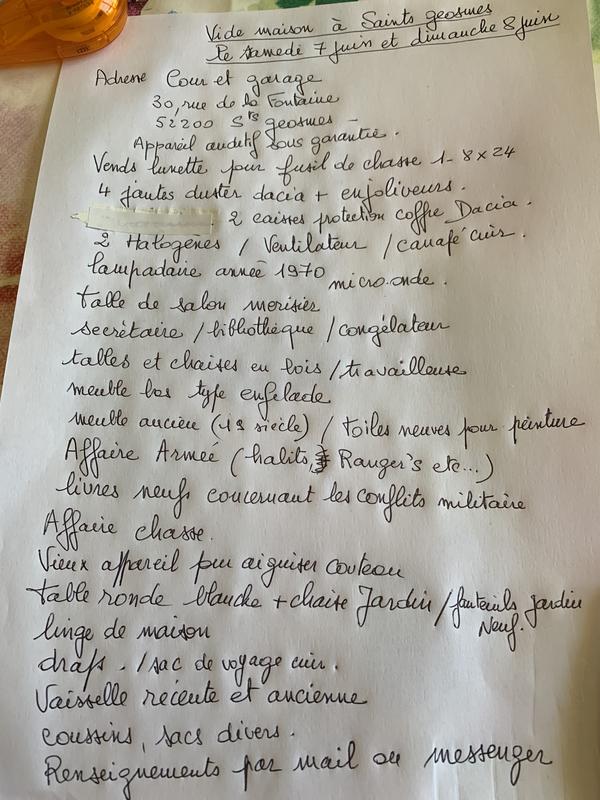 Vide maison à Saints geosmes
le samedi 7 juin et dimanche 8 juin
Adresse Cour et garage
30, rue de la Fontaine
52200 Sts geosmes -
Appareil auditif sous garantie.
Vends lunette pour fusil de chasse 1-8x24
4 jantes duster dacia + enjoliveurs.
2 caisses protection coffre Dacia.
2 Halogenes / Ventilateur / canapé cuir.
lampadaire année 1970 micro.onde.
table de salon merisier
secrètaire / bibliothèque / congélateur
tables et chaises en bois / travailleuse
meuble bas type enfilade
meuble ancien (19 siècle) / toiles neuves pour peinture
Affaire Armée (habits, Ranger's etc...)
livres neufs concernant les conflits militaire
Affaire chasse.
Vieux appareil pour aiguiser couteau
table ronde blanche + chaise Jardin / fauteuils Jardin
Neuf.
linge de maison
draps. / sac de voyage cuir.
Vaisselle récente et ancienne
coussins, sacs divers.
Renseignements par mail ou messenger